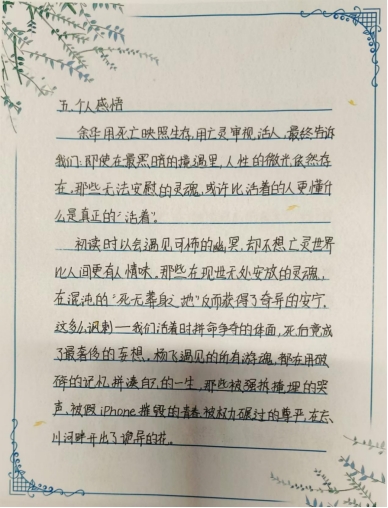 五.个人感悟
余华用死亡映照生存,用亡灵审视活人,最终告诉
我们:即使在最黑暗的境遇里,人性的微光依然存
在,那些无法安慰的灵魂,或许比活着的人更懂什
么是真正的“活着”。
初读时以会遇见可怖的幽冥,却不想亡灵世界
比人间更有人情味。那些在现世无处安放的灵魂,
在混沌的“死无葬身之地”反而获得了奇异的安宁,
这多么讽刺——我们活着时拼命争夺的体面,死后竟成
了最奢侈的妄想。杨飞遇见的所有游魂,都在用破
碎的记忆拼凑自己的一生,那些被强拆掩埋的哭
声、被假iPhone摧毁的青春、被权力碾过的尊严,在忘
川河畔开出了诡异的花。